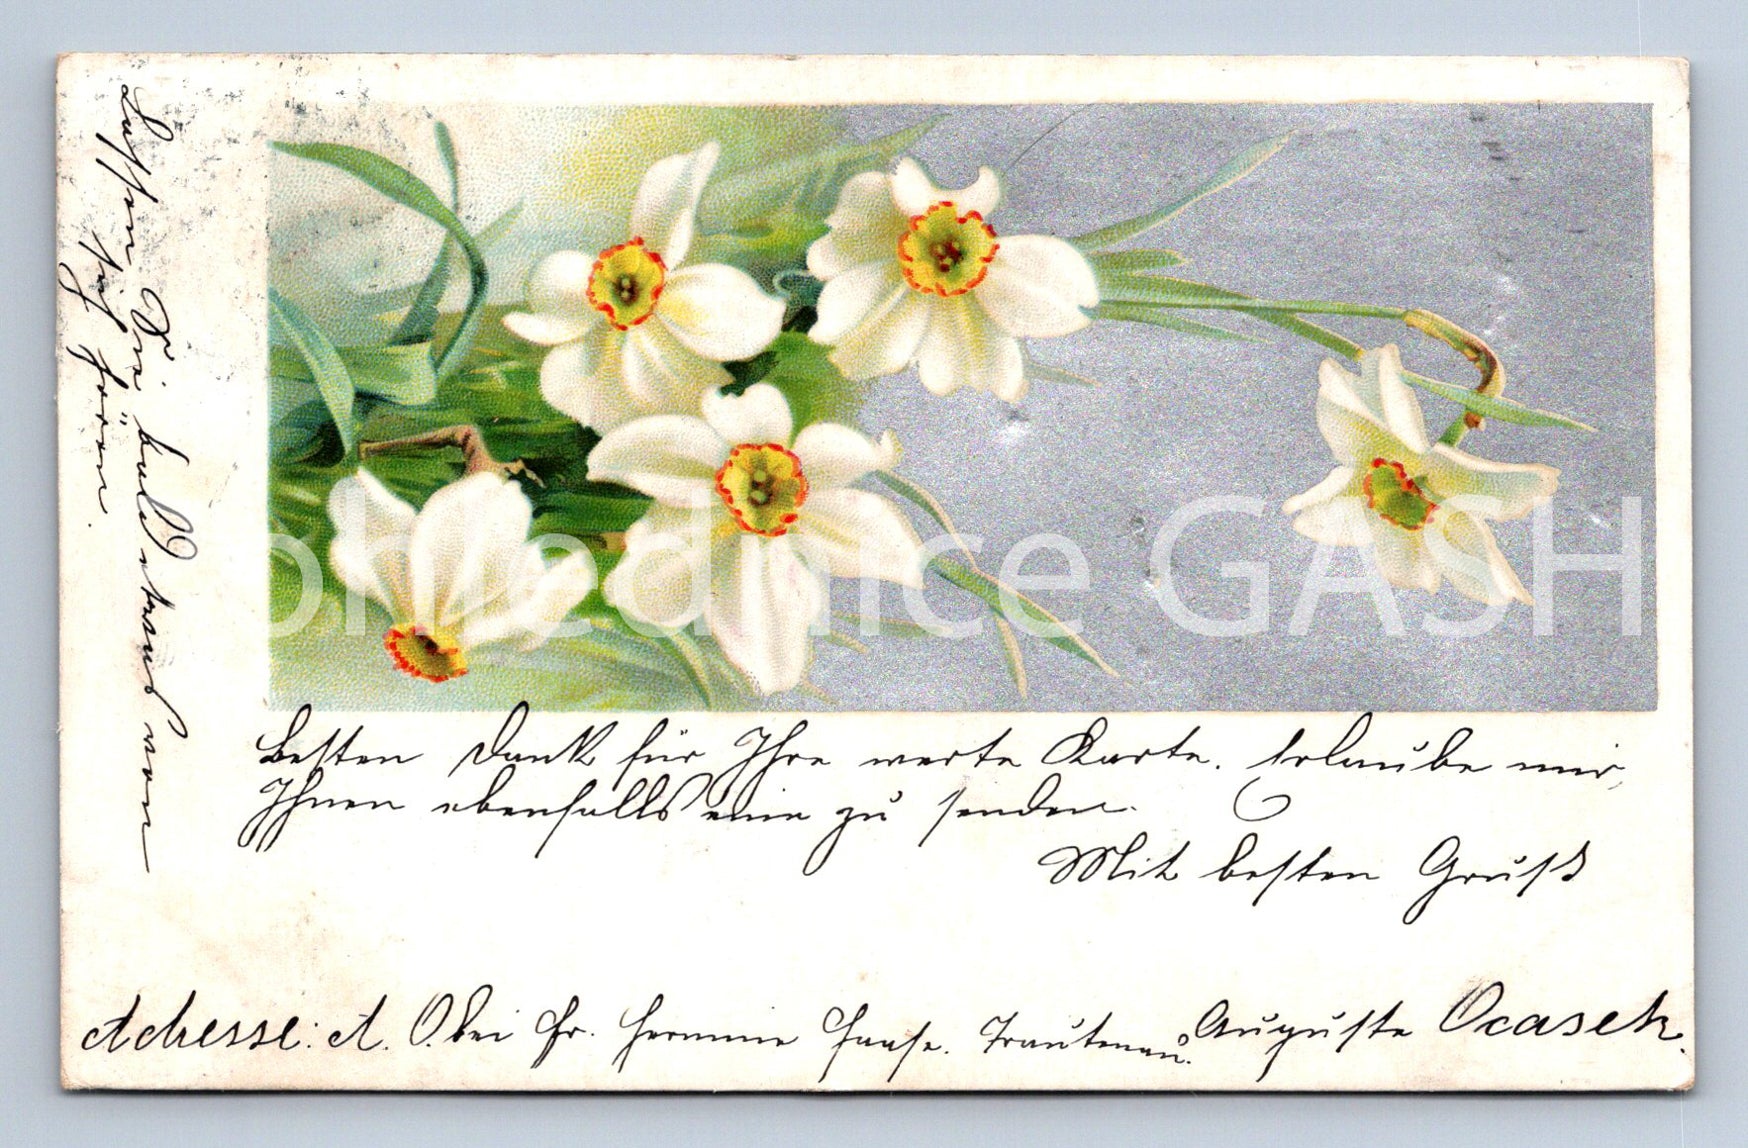 Besten Dank für Ihre werte Karte. Erlaube mir,
Ihnen ebenfalls eine zu senden.
Mit besten Gruß
Auguste Ocasek.
Adresse: A. O. bei Fr. Hermine Haase. Trautenau.
Lassen Sie bald etwas von
sich hören.
pohlednice GASH